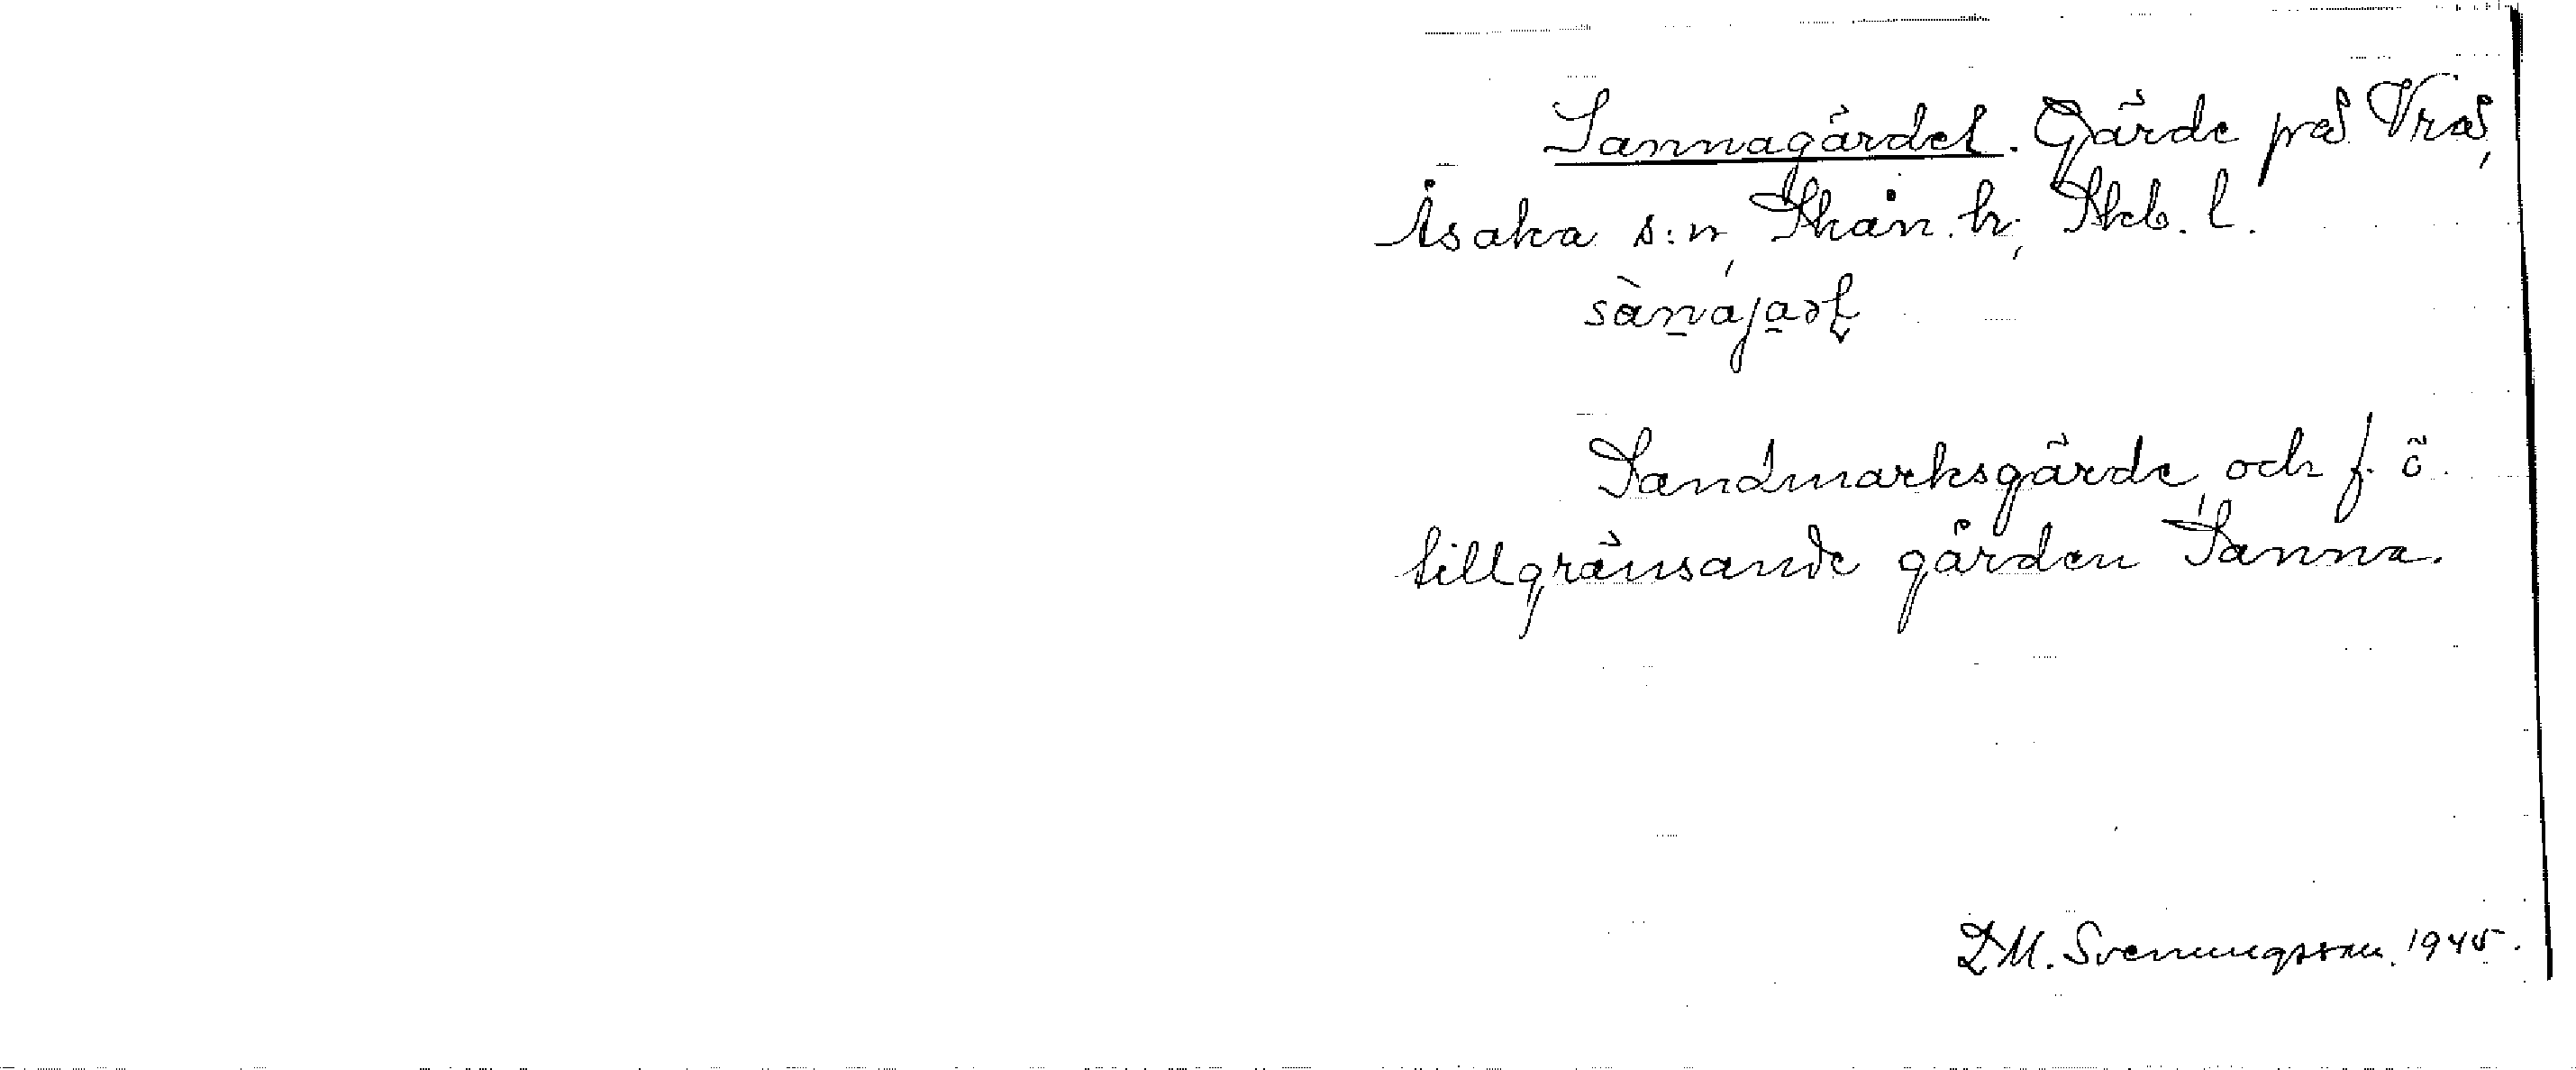 Sannagärdet. Gärde på Vrå,
Åsaka s:n, Skån. h., Skb. l.
Sandmarksgärde, och f. ö.
tillgränsande gården Sanna.
D M. Svenungsson. 1945.